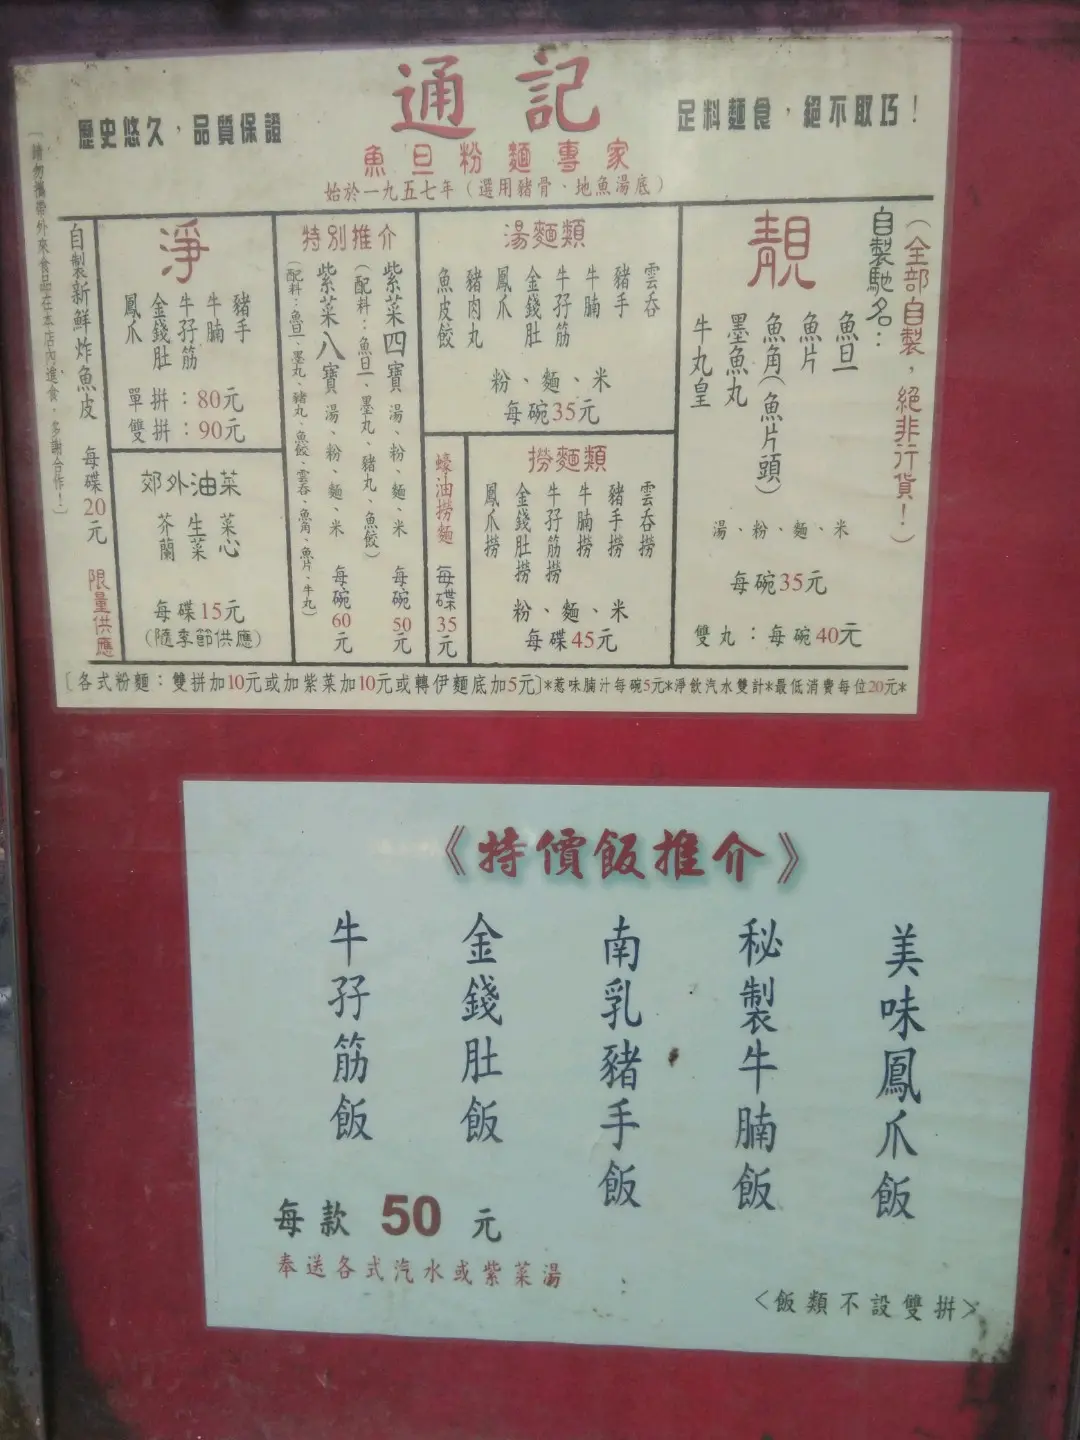 通記
歷史悠久，品質保證
足料麵食，絕不取巧！
魚旦粉麵專家
始於一九五七年（選用豬骨、地魚湯底）
（全部自製，絕非行貨！）
自製馳名：
靚
魚旦
魚片
魚角（魚片頭）
墨魚丸
牛丸皇
湯、粉、麵、米
每碗35元
雙丸：每碗40元
湯麵類
雲吞
豬手
牛腩
牛孖筋
金錢肚
鳳爪
豬肉丸
魚皮餃
粉、麵、米
每碗35元
撈麵類
雲吞撈
豬手撈
牛腩撈
牛孖筋撈
金錢肚撈
鳳爪撈
粉、麵、米
每碟45元
蠔油撈麵 每碟35元
特別推介
紫菜四寶 湯、粉、麵、米 每碗50元
（配料：魚旦、墨丸、豬丸、魚餃）
紫菜八寶 湯、粉、麵、米 每碗60元
（配料：魚旦、墨丸、豬丸、魚餃、雲吞、魚角、魚片、牛丸）
淨
豬手
牛腩
牛孖筋
金錢肚
鳳爪
單拼：80元
雙拼：90元
郊外油菜
菜心
生菜
芥蘭
每碟15元
（隨季節供應）
自製新鮮炸魚皮 每碟20元 限量供應
［請勿攜帶外來食品在本店內進食，多謝合作！］
［各式粉麵：雙拼加10元或加紫菜加10元或轉伊麵底加5元］*惹味腩汁每碗5元*淨飲汽水雙計*最低消費每位20元*
《特價飯推介》
美味鳳爪飯
秘製牛腩飯
南乳豬手飯
金錢肚飯
牛孖筋飯
每款 50 元
奉送各式汽水或紫菜湯
<飯類不設雙拼>